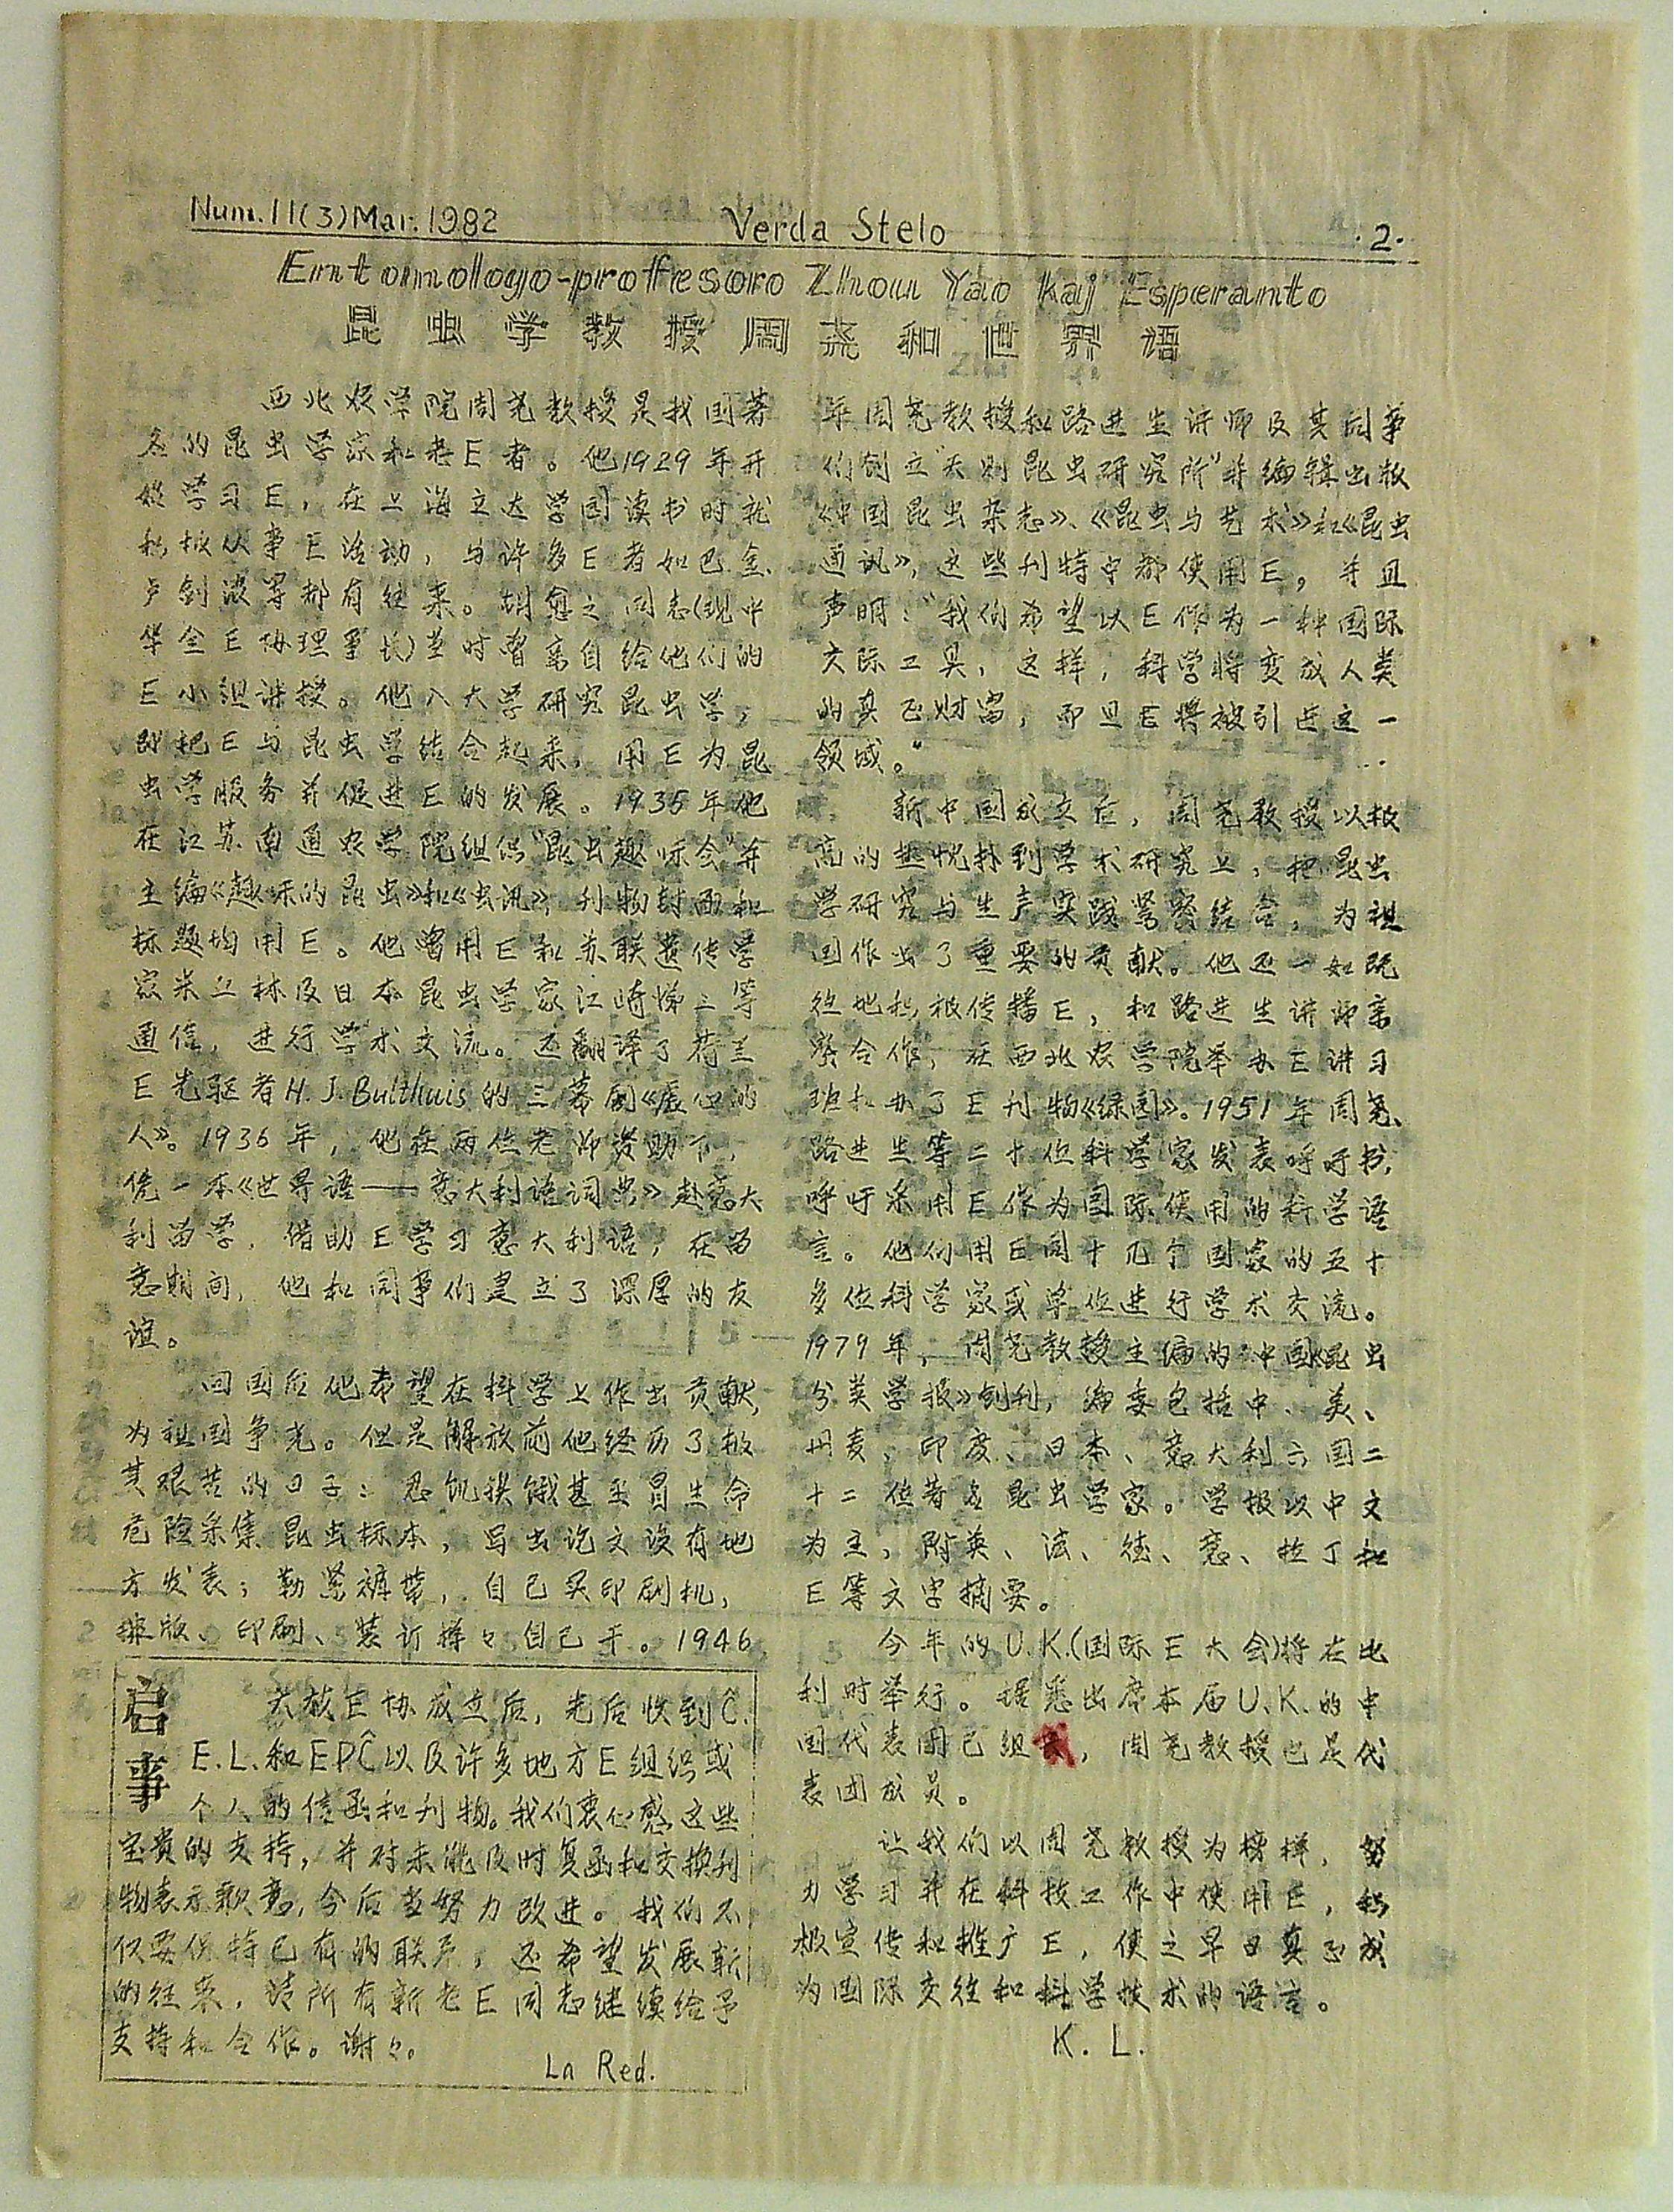 Num.11(3)Mar.1982
Verda Stelo
·2·
Entomologo-profesoro Zhou Yao kaj Esperanto
昆虫学教授周尧和世界语
西北农学院周尧教授是我国著
名的昆虫学家和老E者。他1929年开
始学习E，在上海立达学园读书时就
积极从事E活动，与许多E者如巴金、
卢剑波等都有往来。胡愈之同志(现中
华全E协理事长)当时曾亲自给他们的
E小组讲授。他入大学研究昆虫学，
就把E与昆虫学结合起来，用E为昆
虫学服务并促进E的发展。1935年他
在江苏南通农学院组织“昆虫趣味会”并
主编《趣味的昆虫》和《虫讯》，刊物封面和
标题均用E。他曾用E和苏联遗传学
家米丘林及日本昆虫学家江崎悌三等
通信，进行学术交流。还翻译了荷兰
E先驱者H.J.Bulthuis的三幕剧《虚心的
人》。1936年，他在两位老师资助下，
凭一本《世界语——意大利语词典》赴意大
利留学，借助E学习意大利语，在留
意期间，他和同事们建立了深厚的友
谊。
回国后他希望在科学上作出贡献，
为祖国争光。但是解放前他经历了极
其艰苦的日子：忍饥挨饿甚至冒生命
危险采集昆虫标本，写出论文没有地
方发表；勒紧裤带，自己买印刷机，
排版、印刷、装订样々自己干。1946
启事
天赦E协成立后，先后收到Ĉ.
E.L.和EPĈ以及许多地方E组织或
个人的信函和刊物。我们衷心感这些
宝贵的支持，并对未能及时复函和交换刊
物表示歉意，今后当努力改进。我们不
仅要保持已有的联系，还希望发展新
的往来，请所有新老E同志继续给予
支持和合作。谢々。
La Red.
年周尧教授和路进生讲师及其同事
们创立“天则昆虫研究所”并编辑出版
《中国昆虫杂志》、《昆虫与艺术》和《昆虫
通讯》，这些刊特中都使用E，并且
声明：“我们希望以E作为一种国际
交际工具，这样，科学将变成人类
的真正财富，而且E将被引进这一
领域。”
新中国成立后，周尧教授以极
高的热忱扑到学术研究上，把昆虫
学研究与生产实践紧密结合，为祖
国作出了重要的贡献。他还一如既
往地积极传播E，和路进生讲师亲
密合作，在西北农学院举办E讲习
班和办了E刊物《绿园》。1951年周尧、
路进生等二十位科学家发表呼吁书，
呼吁采用E作为国际使用的科学语
言。他们用E同十几个国家的五十
多位科学家或单位进行学术交流。
1979年，周尧教授主编的中国《昆虫
分类学报》创刊，编委包括中、美、
丹麦、印度、日本、意大利六国二
十二位著名昆虫学家。学报以中文
为主，附英、法、德、意、拉丁和
E等文字摘要。
今年的U.K.(国际E大会)将在比
利时举行。据悉出席本届U.K.的中
国代表团已组成，周尧教授也是代
表团成员。
让我们以周尧教授为榜样，努
力学习并在科技工作中使用E，积
极宣传和推广E，使之早日真正成
为国际交往和科学技术的语言。
K. L.